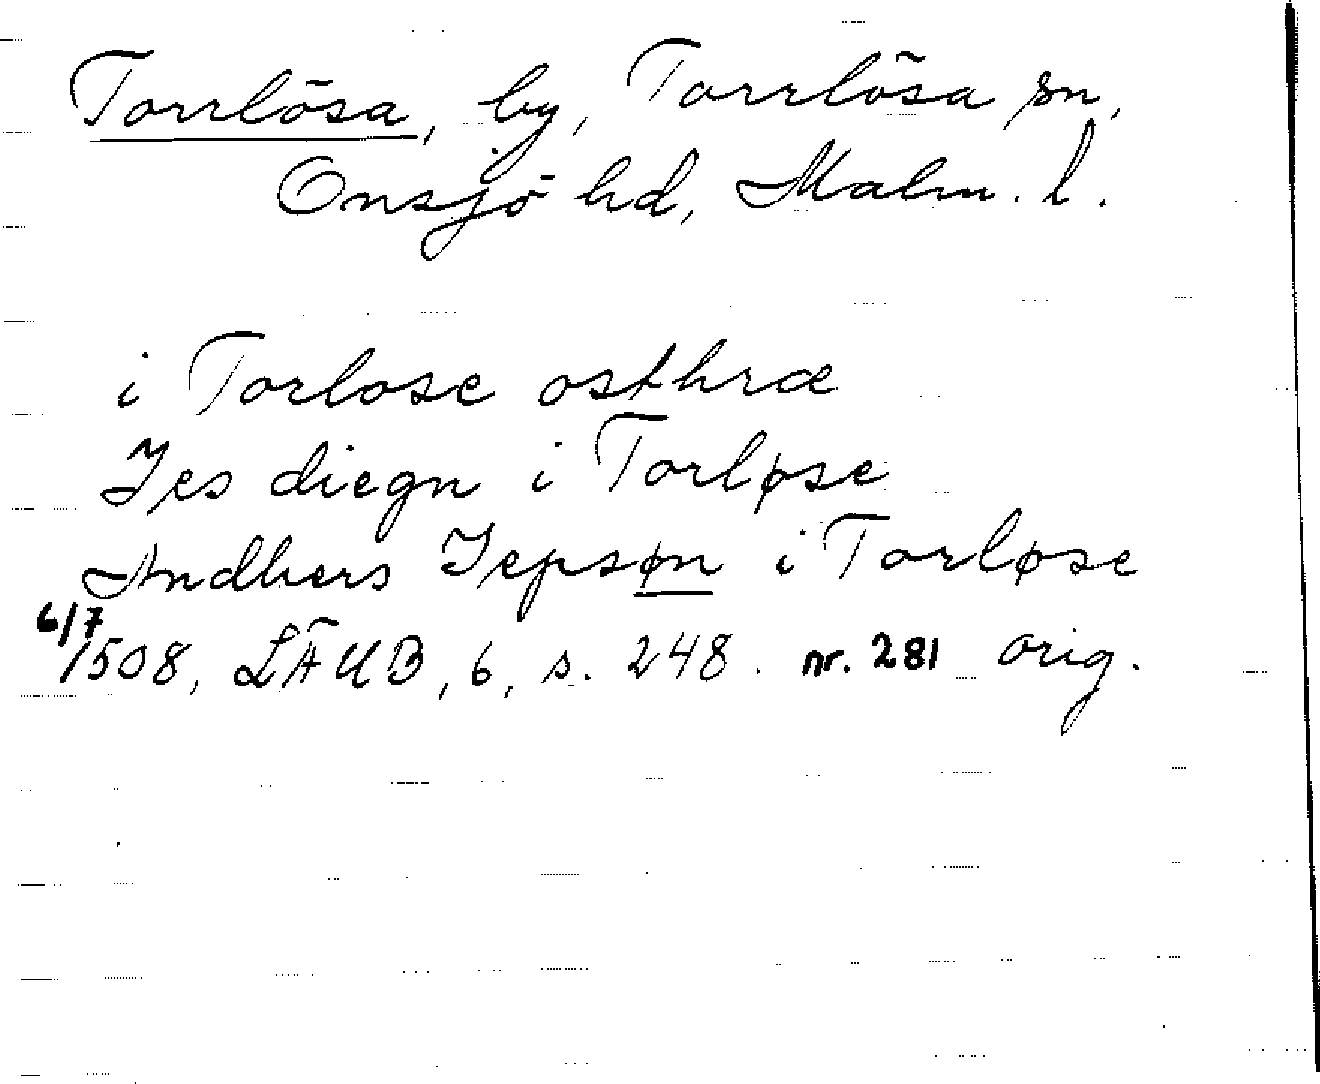 Torrlösa, by, Torrlösa sn,
Onsjö hd, Malm. l.
i Torlose osthræ
Jes diegn i Torløse
Andhers Jepsøn i Torløse
6/7 1508, LÄUB, 6, s. 248. nr. 281 orig.